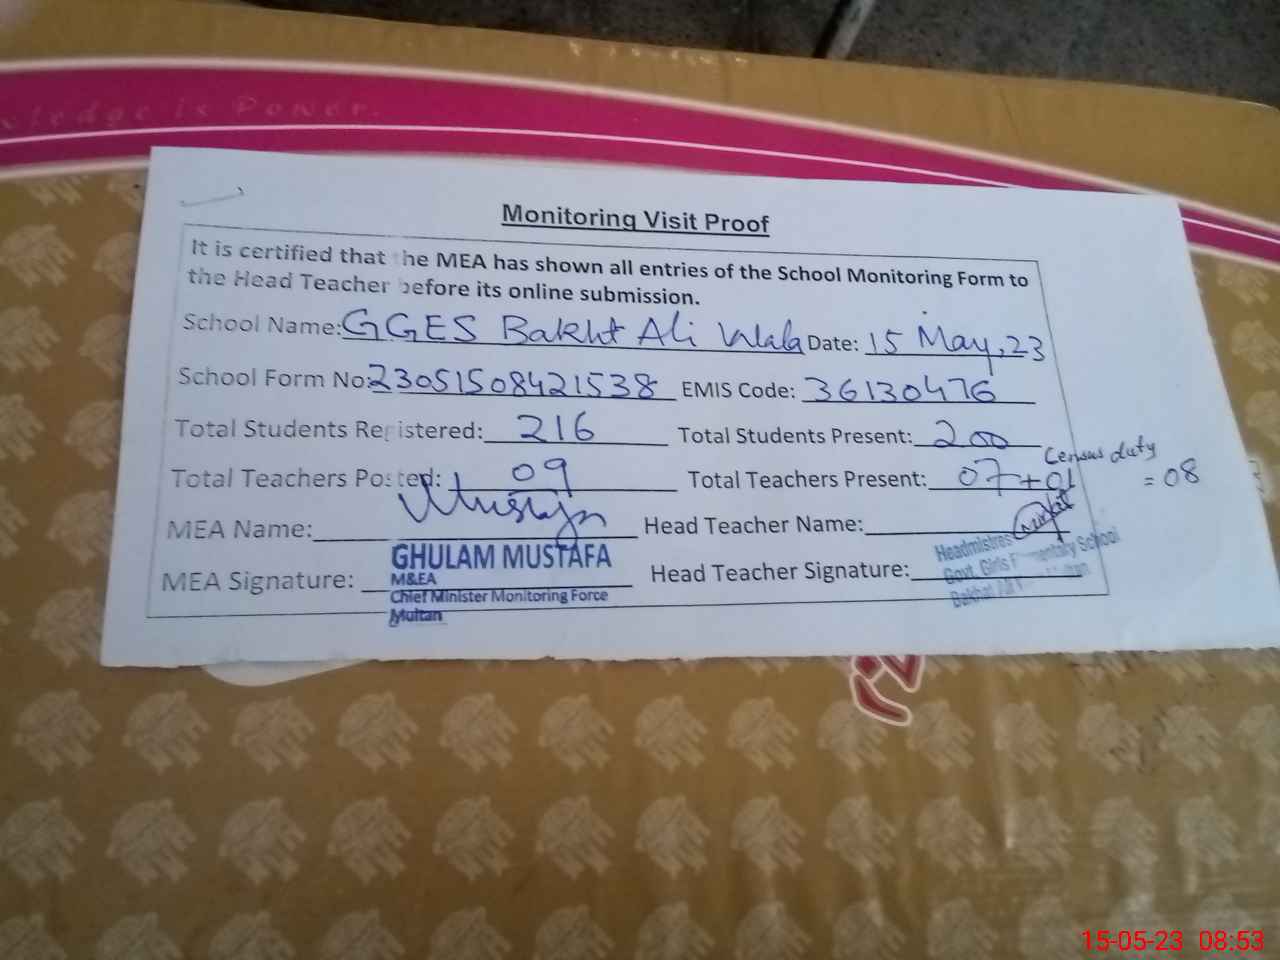 Knowledge is Power.
Monitoring Visit Proof
It is certified that the MEA has shown all entries of the School Monitoring Form to
the Head Teacher before its online submission.
School Name: GGES Bakht Ali Wala Date: 15 May, 23
School Form No: 23051508421538 EMIS Code: 36130476
Total Students Registered: 216 Total Students Present: 200
Census duty
Total Teachers Posted: 09 Total Teachers Present: 07+01 = 08
MEA Name: Head Teacher Name:
GHULAM MUSTAFA
MEA Signature: Head Teacher Signature:
M&EA
Chief Minister Monitoring Force
Multan
Headmistress
Govt. Girls Elementary School
15-05-23 08:53